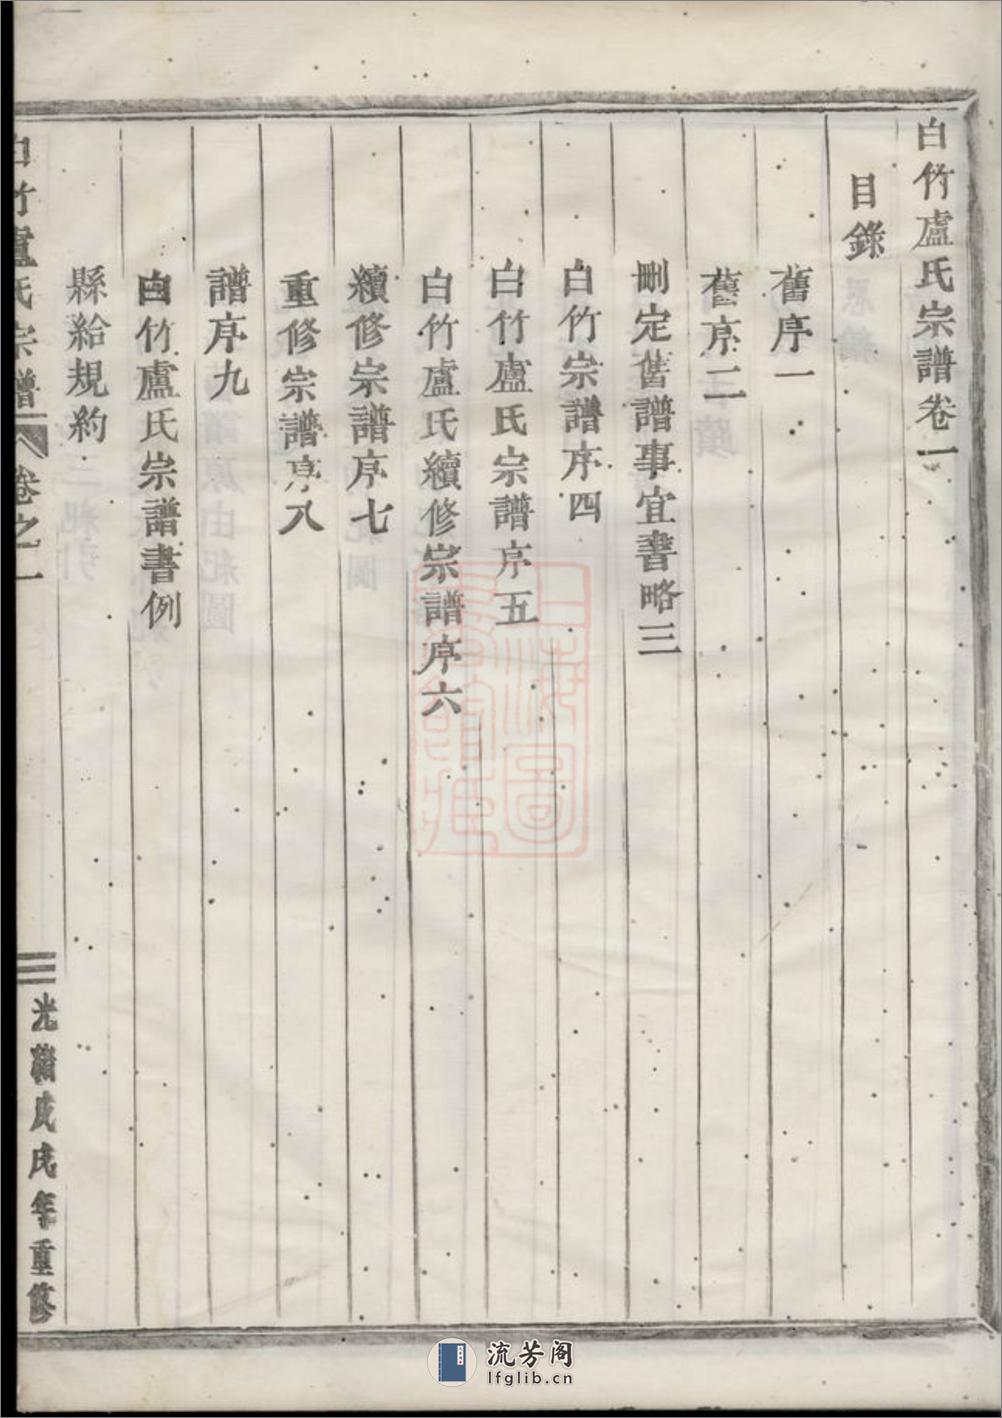 白竹盧氏宗譜卷一
目錄
舊序一
舊序二
刪定舊譜事宜書略三
白竹宗譜序四
白竹盧氏宗譜序五
白竹盧氏續修宗譜序六
續修宗譜序七
重修宗譜序八
譜序九
白竹盧氏宗譜書例
縣給規約
白竹盧氏宗譜
卷之一
光緒戊戌年重修
上海圖書館藏
流芳阁
lfglib.cn